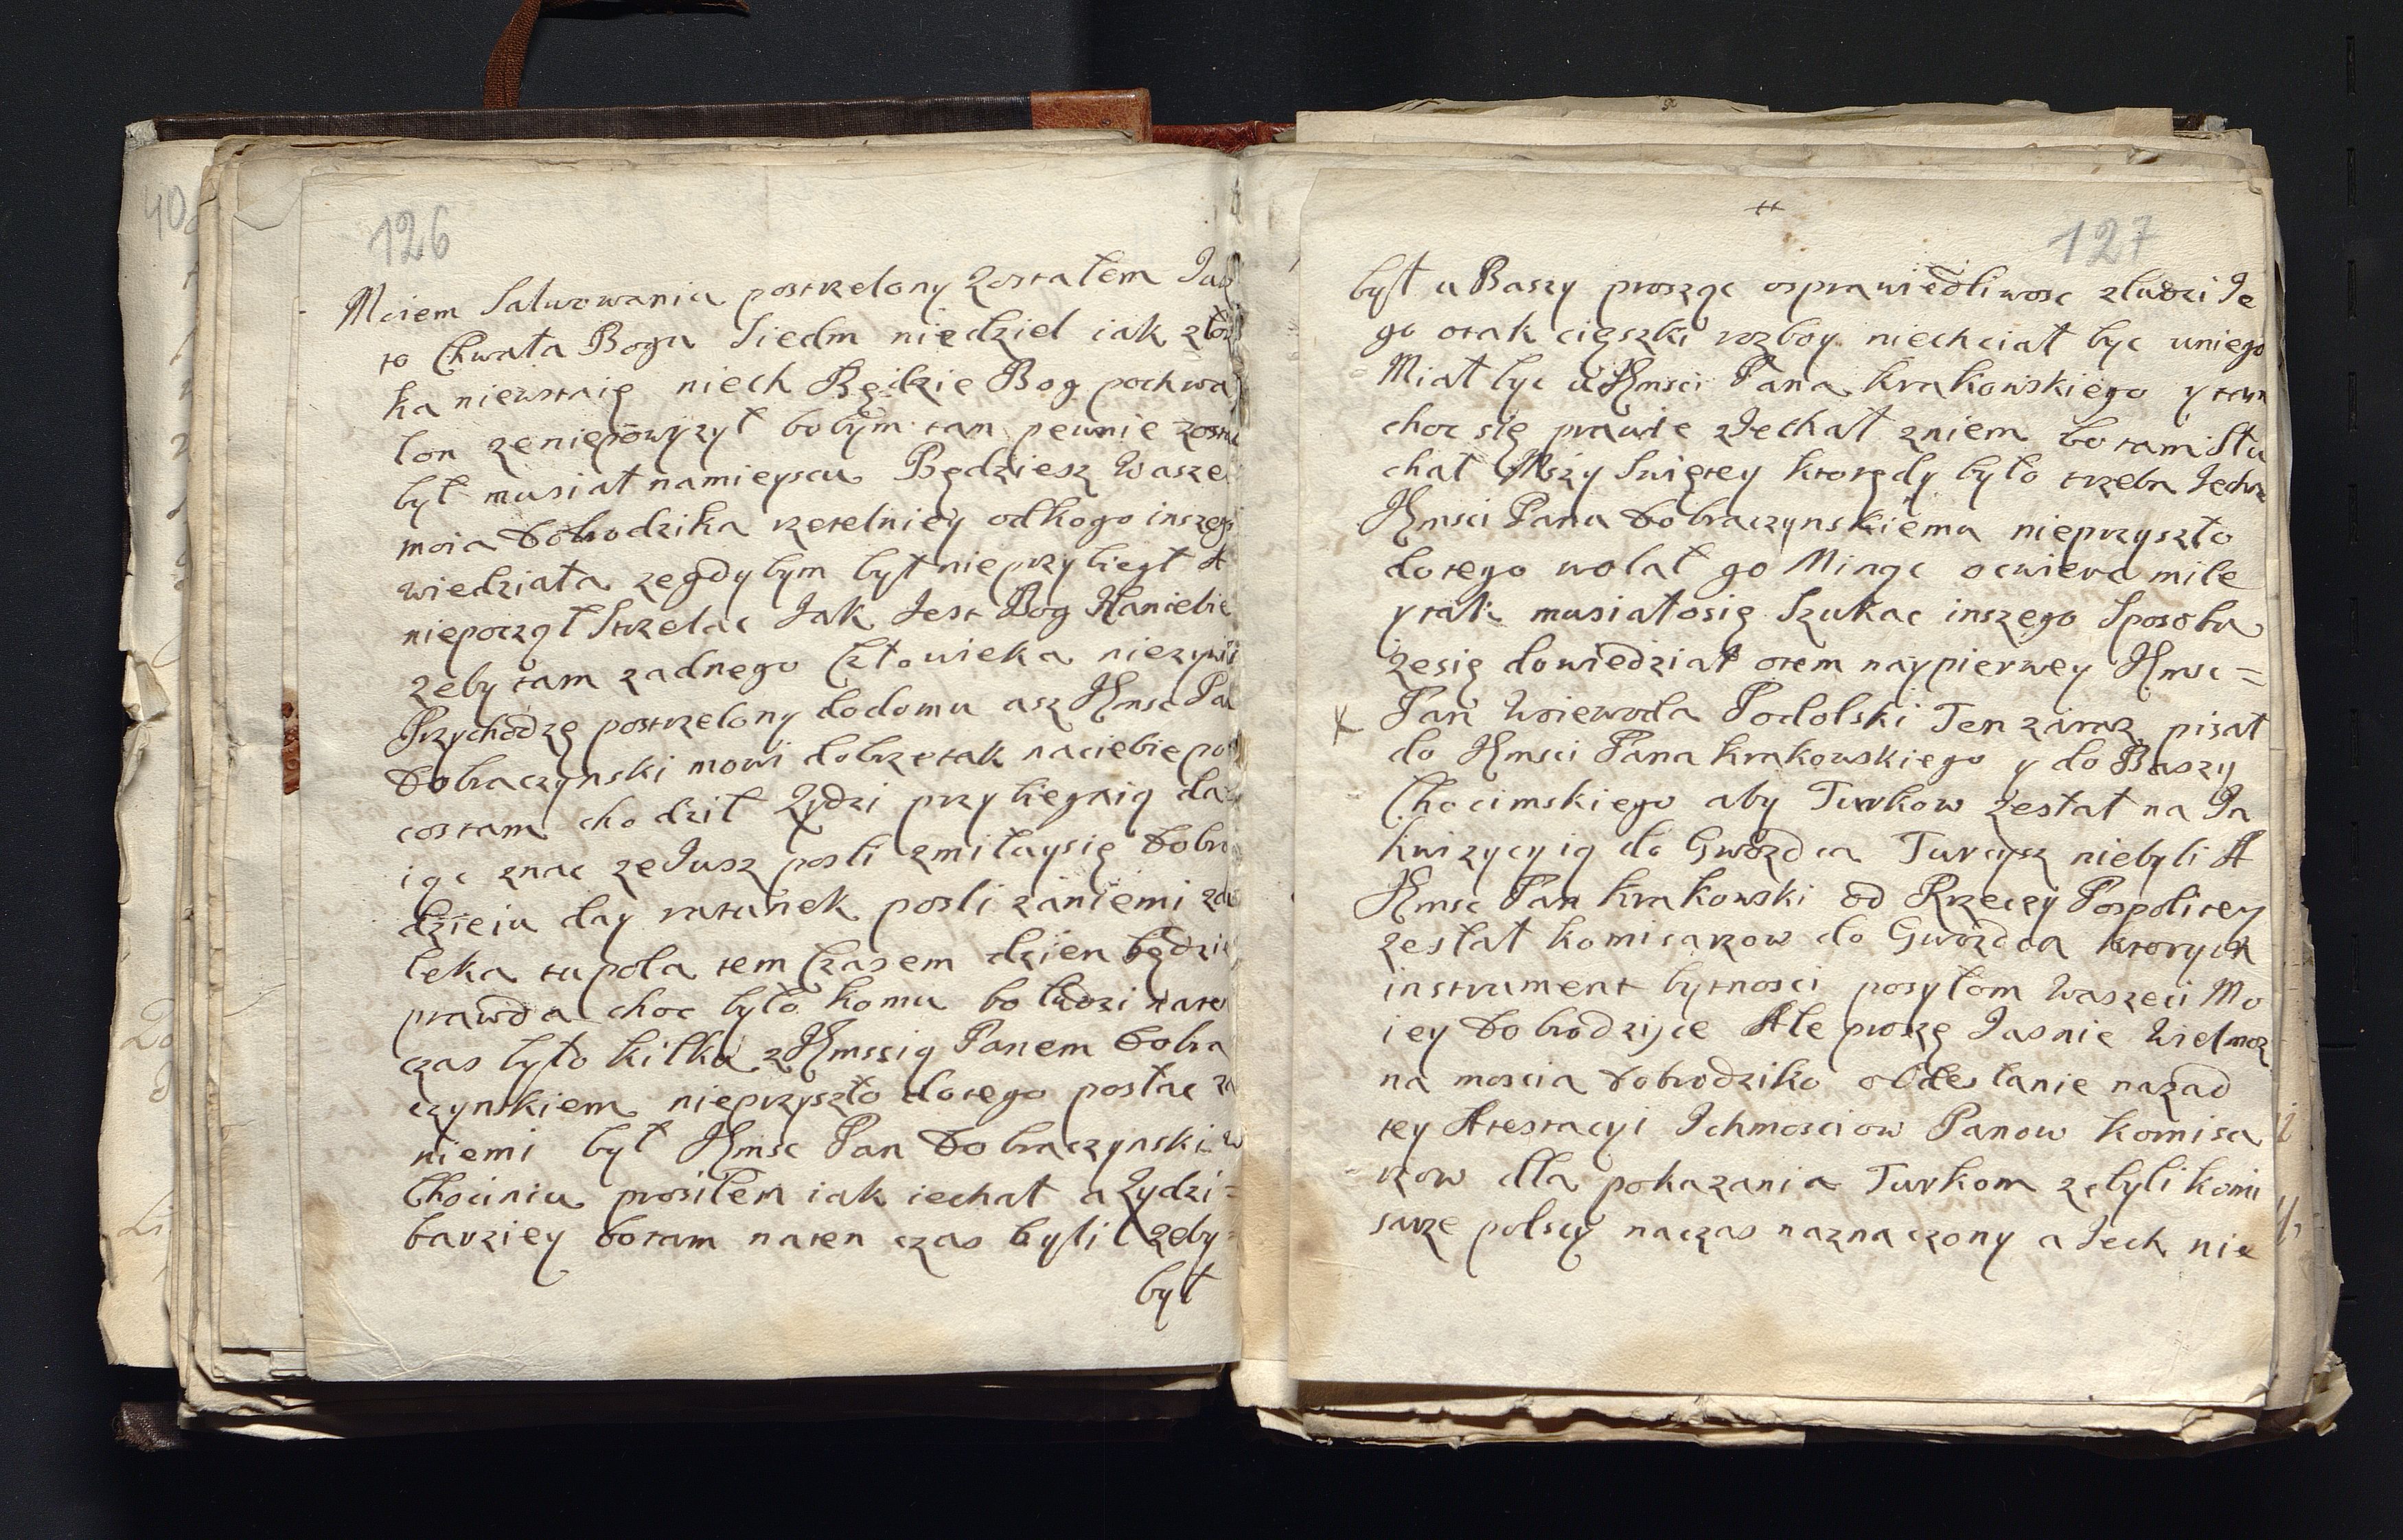 126
Mciem Salwowania postrzelony zostałem Jusz
to Chwała Bogu Siedm niedziel iak złoz
ka niewstaię niech Będzie Bog pochwa
lon zeniepowyzył bobym tam pewnie zosta
był musiał namieyscu Będziesz Wasze
moia Dobrodzika rzetelniey odkogo inszego
wiedziała zegdybym był nieprzybiegł A
niepoczął Strzelac Jak Jest Bog Naniebie
zeby tam zadnego Człowieka niezywi
Przychodzę postrzelony dodomu asz Jmsc Pan
Dobraczynski mowi dobrzetak naciebie po
costam chodził Zydzi przybiegaią da
iąc znac zeJusz posli zmiłuysię Dobro
dzieiu day ratunek posli zaniemi
leka tu pola tem Czasem dzien będzie
prawda choc było komu bo ludzi naten
czas było kilku zJmssią Panem Dobra
czynskiem nieprzyszło dotego posłac za
niemi był Jmsc Pan Dobraczynski w
Chocimiu prosiłem iak iechał a Zydzi=
barziey botam naten czas byli zeby=
był
127
był u Baszy prosząc osprawiedliwosc zludzi Je
go otak cięszki rozboy niechciał byc uniego
Miał byc u Jmsci Pana Krakowskiego y tam
choc się prawie zJechał zniem bo tam Słu
chał Mszy Swiętey ktorędy było trzeba Jechac
Jmsci Panu Dobraczynskiemu nieprzyszło
dotego wolał go Minąc ocwierc mile
ytak musiałosię Szukac inszego Sposobu
zesię dowiedział otem naypierwey Jmsc=
Pan Woiewoda Podolski Ten zaraz pisał
do Jmsci Pana Krakowskiego y do Baszy
Chocimskiego aby Turkow zesłał na In
kwizycyią do Gwozdca Turcysz niebyli A
Jmsc Pan Krakowski od Rzeczy Pospolitey
zesłał Komisarzow do Gwozdca ktorych
instrument bytnosci posyłom Waszeci Mo
iey Dobrodzijce Ale proszę Jasnie Wielmoz
na moscia Dobrodziko obdesłanie nazad
tey Atestacyi Ichmosciow Panow Komisa
rzow dla pokazania Turkom ze byli komi
sarze polscy naczas naznaczony a Jech nie